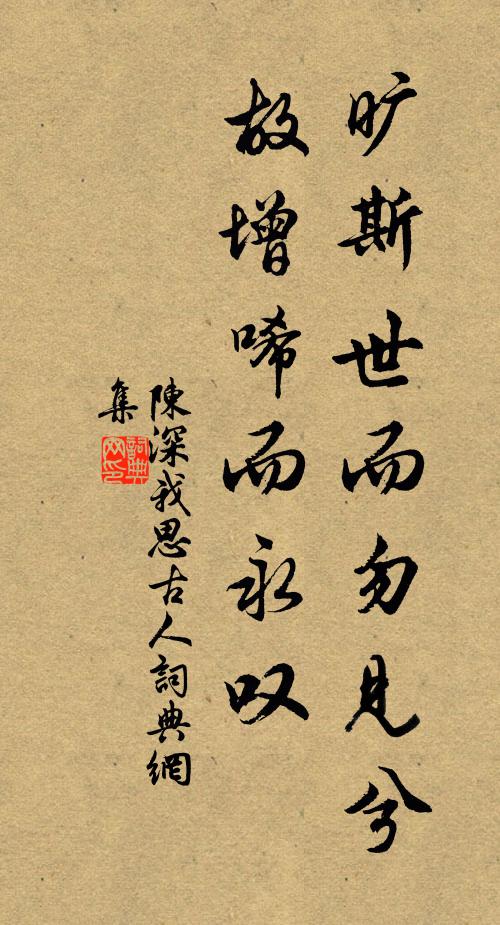 旷斯世而勿见兮
故增唏而永叹
陳深我思古人詞典網
集
詞典
网印